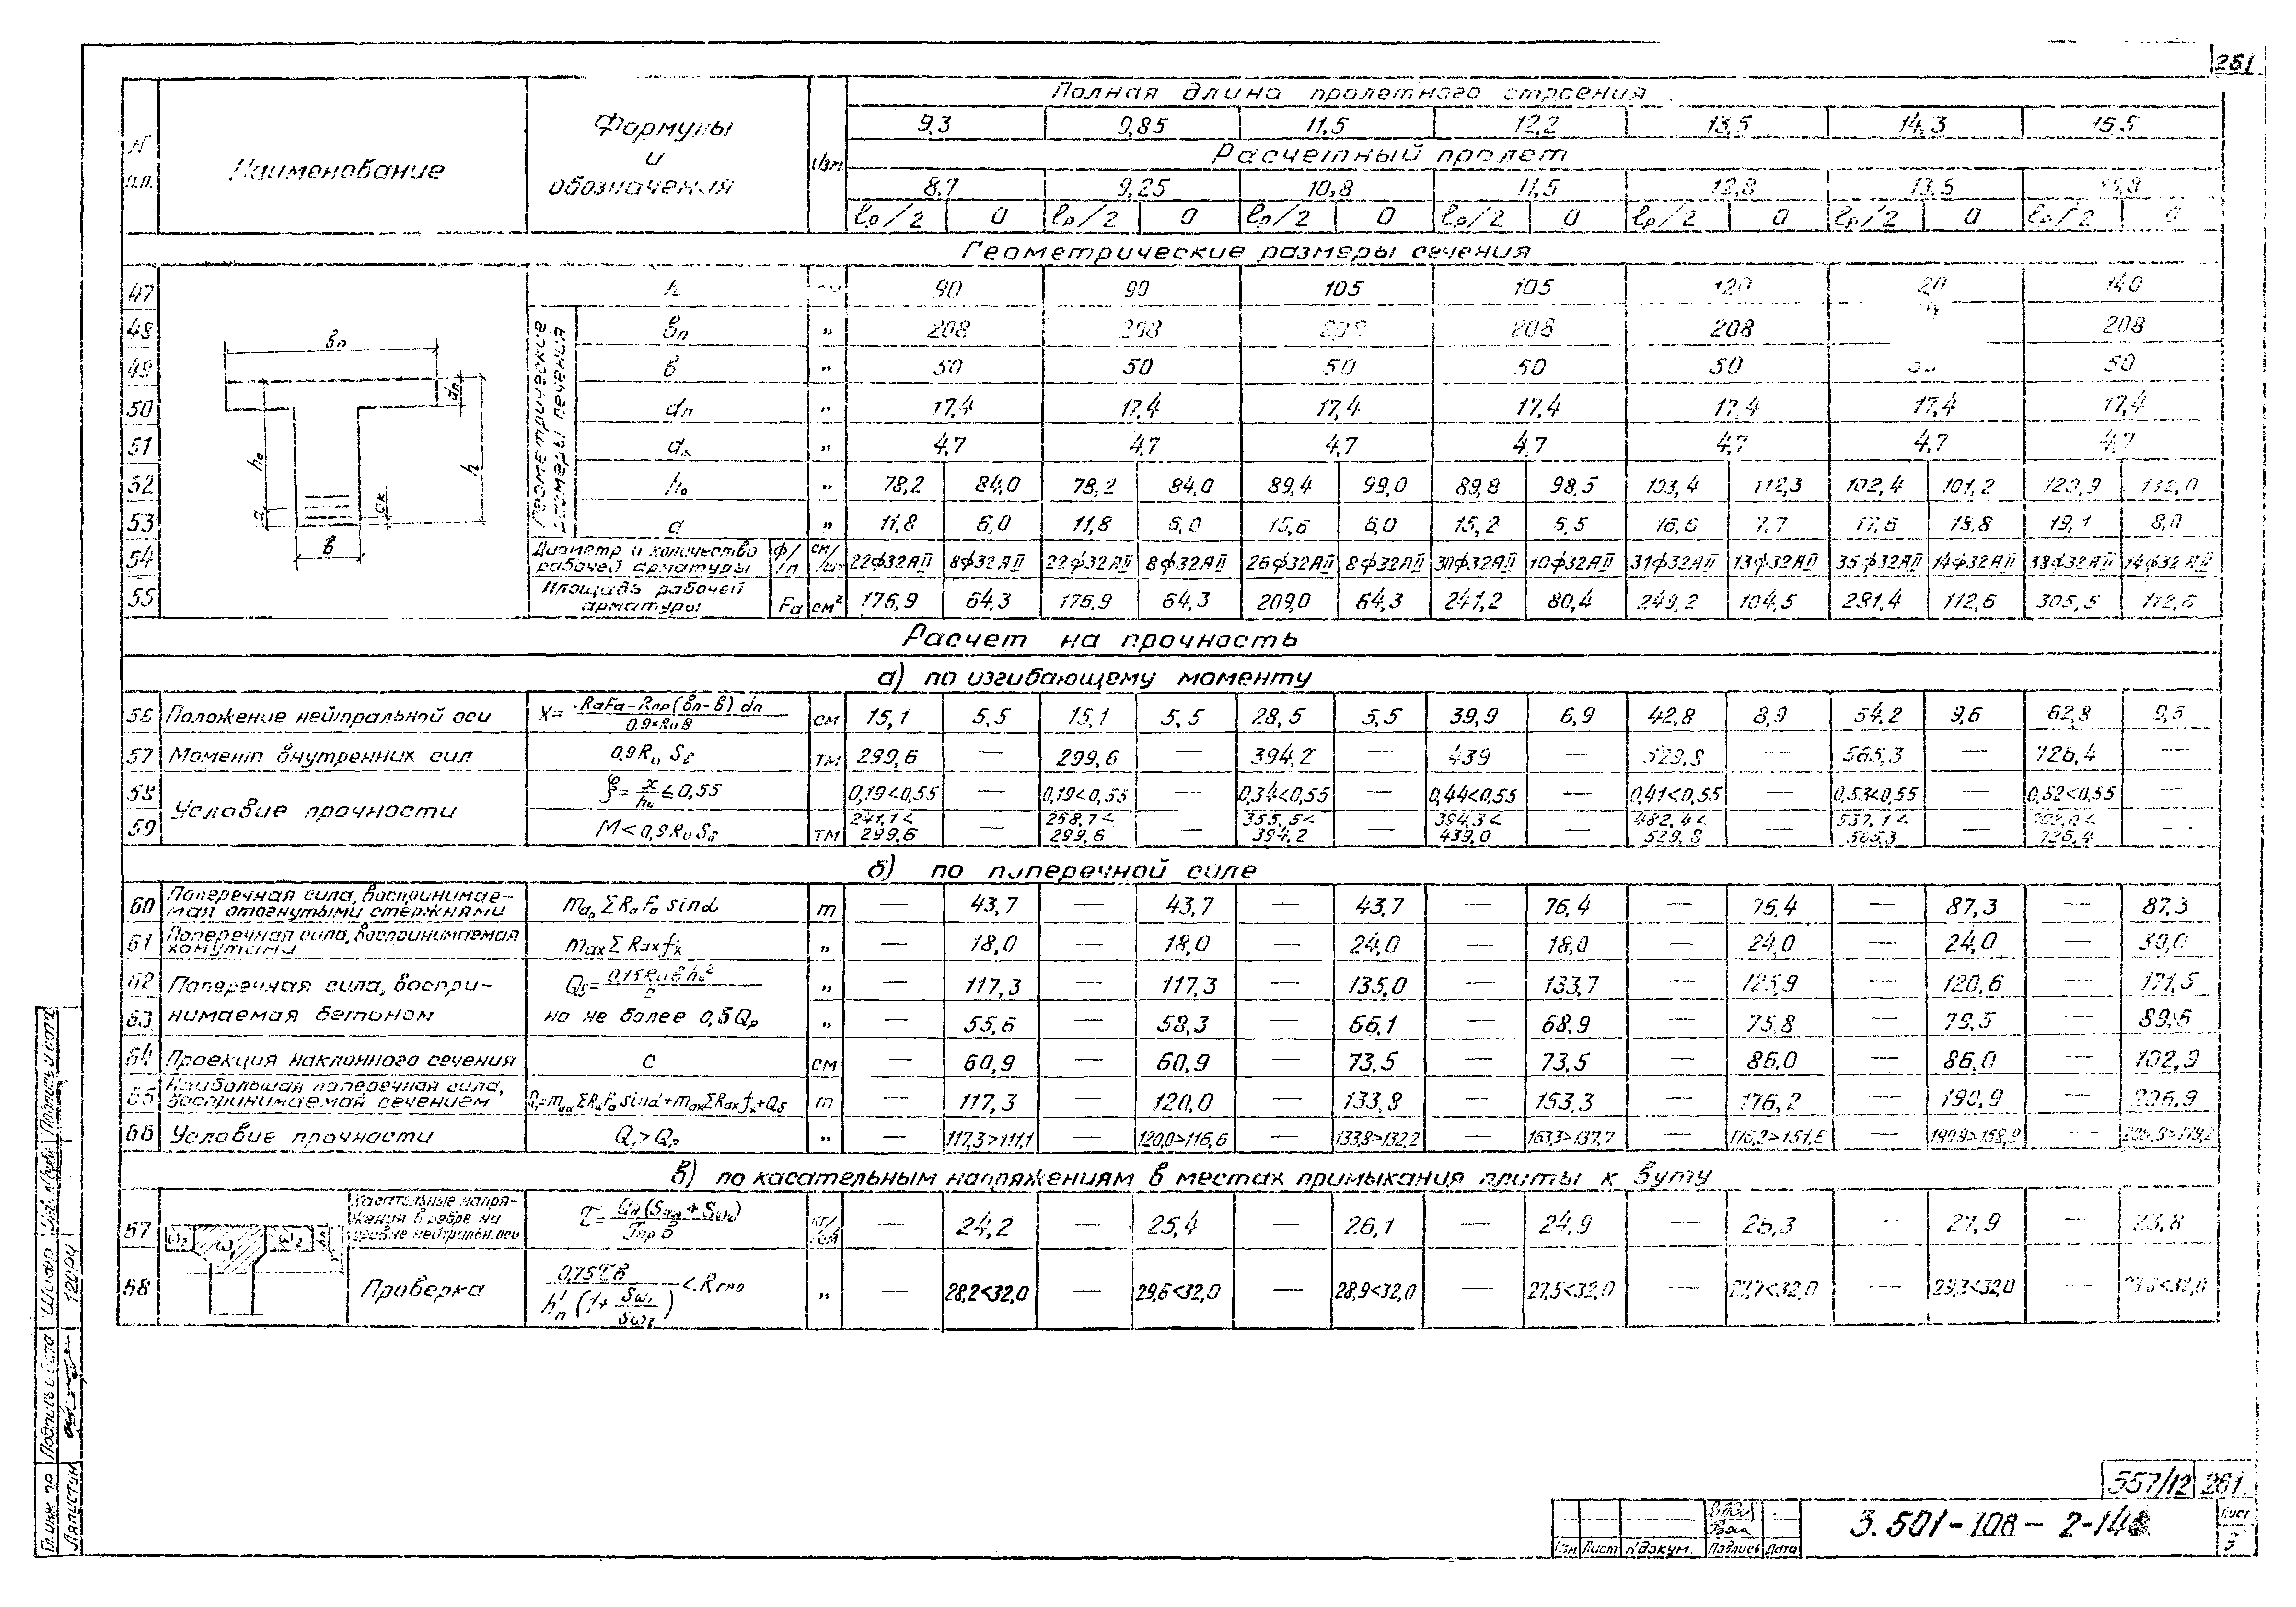 261
N п.п.
Наименование
Формулы и обозначения
Изм
Полная длина пролетного строения
9,3 9,85 11,5 12,2 13,5 14,3 16.5
Расчетный пролет
8,7 9,25 10,8 11,5 12,8 13,5
ℓр/2 0 ℓр/2 0 ℓр/2 0 ℓр/2 0 ℓр/2 0 ℓр/2 0 ℓр/2 0
Геометрические размеры сечения
Геометрические размеры сечения
47 h 90 90 105 105 120 140
48 вп " 208 208 208 208 208 208
49 в " 50 50 50 50 50 50
50 dп " 17,4 17,4 17,4 17,4 17,4 17,4 17,4
51 aк " 4,7 4,7 4,7 4,7 4,7 4,7 4,7
52 h₀ " 78,2 84,0 78,2 84,0 89,4 99,0 89,8 98,5 103,4 112,3 102,4 101,2 120,9 132,0
53 a " 11,8 6,0 11,8 6,0 15,6 6,0 15,2 6,5 16,6 7,7 17,6 18,8 19,1 8,0
54 Диаметр и количество рабочей арматуры ф/п см/шт 22ф32АII 8ф32АII 22ф32АII 8ф32АII 26ф32АII 8ф32АII 30ф32АII 10ф32АII 31ф32АII 13ф32АII 35ф32АII 14ф32АII 38ф32АII 14ф32АII
55 Площадь рабочей арматуры Fа см² 176,9 64,3 176,9 64,3 209,0 64,3 241,2 80,4 249,2 104,5 281,4 112,6 305,5 112,6
вп
dп
h₀
h
a
aк
в
Расчет на прочность
а) по изгибающему моменту
56 Положение нейтральной оси X= RаFа-Rпр(вп-в)dп / 0.9*Rив см 15,1 5,5 15,1 5,5 28,5 5,5 39,9 6,9 42,8 8,9 54,2 9,6 62,8 9,6
57 Момент внутренних сил 0,9Rи Sб тм 299,6 — 299,6 — 394,2 — 439 — 529,8 — 565,3 — 726,4 —
58 Условие прочности ξ= x/h₀ ≤0,55 0,19<0,55 0,19<0,55 — 0,34<0,55 — 0,44<0,55 — 0,41<0,55 — 0,53<0,55 — 0,52<0,55 —
59 M<0,9RиSб тм 241,1< 299,6 — 258,7< 299,6 — 355,5< 394,2 — 394,3< 439,0 — 482,4< 529,8 — 537,1< 565,3 — 726,4 —
б) по поперечной силе
60 Поперечная сила, воспринимаемая отогнутыми стержнями mа₀ΣRаFа sinα т — 43,7 — 43,7 — 43,7 — 76,4 — 76,4 — 87,3 — 87,3
61 Поперечная сила, воспринимаемая хомутами mахΣRахfх " — 18,0 — 18,0 — 24,0 — 18,0 — 24,0 — 24,0 — 30,0
62 Поперечная сила, воспри- Qб= 0,15Rивh₀² / c " — 117,3 — 117,3 — 135,0 — 133,7 — 125,9 — 120,6 — 171,5
63 нимаемая бетоном но не более 0,5Qр " — 55,6 — 58,3 — 66,1 — 68,9 — 75,8 — 79,5 — 89,6
64 Проекция наклонного сечения c см — 60,9 — 60,9 — 73,5 — 73,5 — 86,0 — 86,0 — 102,9
65 Наибольшая поперечная сила, воспринимаемая сечением Q₁=mаоΣRаFа sinα+mахΣRахfх+Qб т — 117,3 — 120,0 — 133,8 — 163,3 — 176,2 — 190,9 — 206,9
66 Условие прочности Q₁>Qр " — 117,3>111,1 — 120,0>116,6 — 133,8>132,2 — 163,3>137,7 — — 206,9>179,2
в) по касательным напряжениям в местах примыкания плиты к вуту
67 Касательные напряжения в ребре на уровне нейтральн. оси τ= Qн(Sω₁+Sω₂) / Jпр в кг/см — 24,2 — 25,4 — 26,1 — 24,9 — 26,3 — 27,9 — 23,8
68 Проверка 0,75τв / h'п(1+ Sω₁/Sω₂) <Rгпо " — 28,2<32,0 — 29,6<32,0 — 28,9<32,0 — 27,5<32,0 — 27,7<32,0 — 29,3<32,0
ω₂ ω₁ ω₂
Гл. инж. пр Ляпустин
Подпись и дата
Шифр 12094
Инв. N/дубл Подпись и дата
557/12 261
Изм Лист N докум. Подпись Дата
3.501-108-2-14
Лист 3